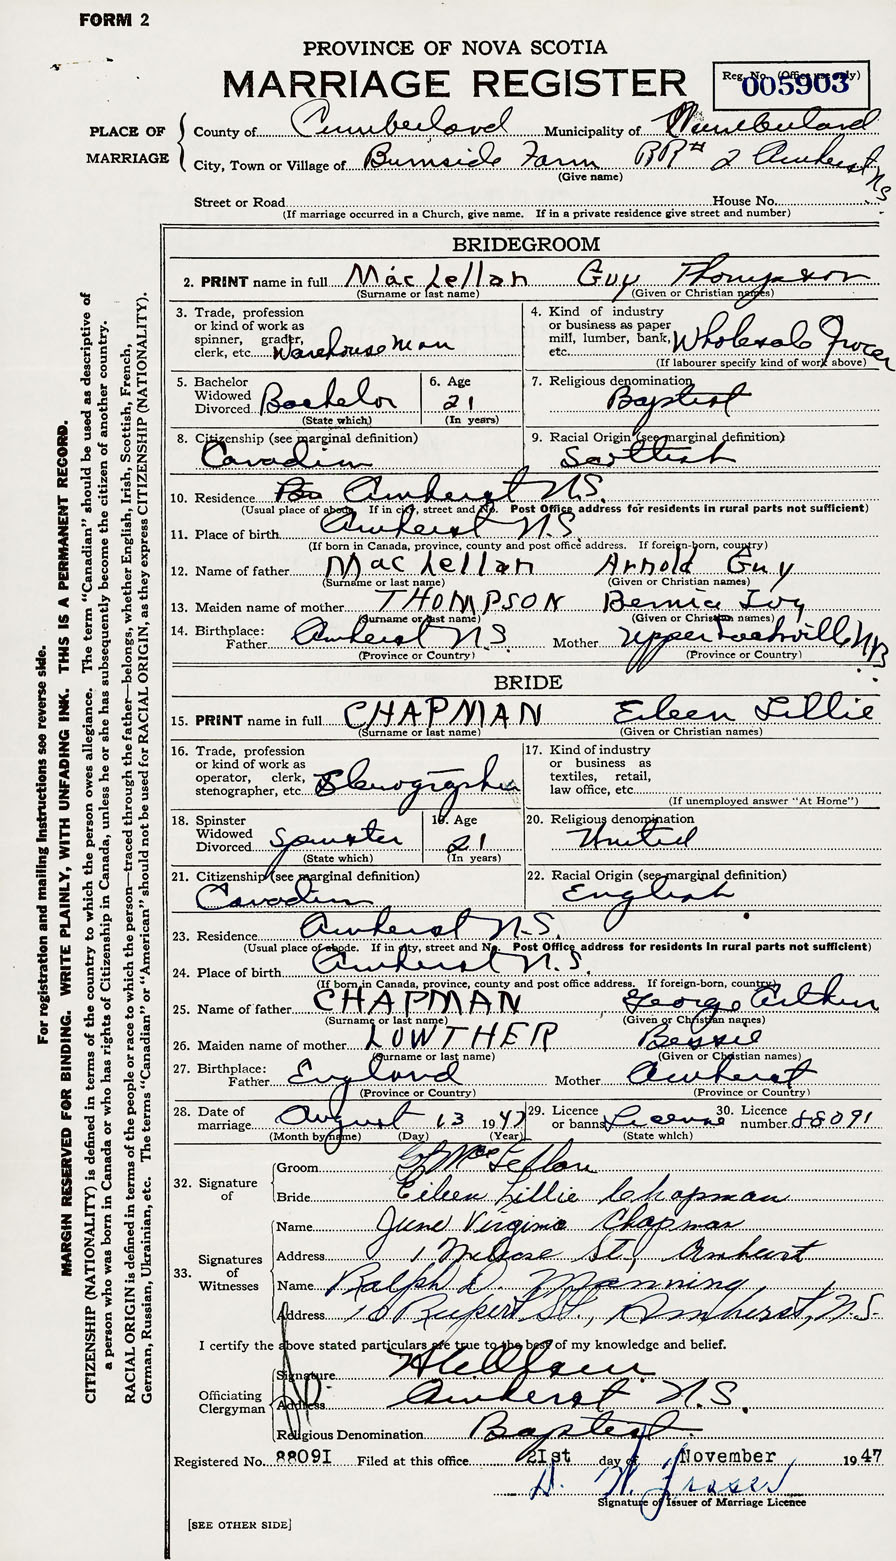 FORM 2
PROVINCE OF NOVA SCOTIA
MARRIAGE REGISTER
Reg. No. (Office use only)
005903
PLACE OF MARRIAGE
County of Cumberland Municipality of Cumberland
City, Town or Village of Burnside Farm RR# 2 Amherst NS
(Give name)
Street or Road House No.
(If marriage occurred in a Church, give name. If in a private residence give street and number)
BRIDEGROOM
2. PRINT name in full Mac Lellan Guy Thompson
(Surname or last name) (Given or Christian names)
3. Trade, profession or kind of work as spinner, grader, clerk, etc. Warehouse man
4. Kind of industry or business as paper mill, lumber, bank, etc. Wholesale Grocer
(If labourer specify kind of work above)
5. Bachelor Widowed Divorced Bachelor
(State which)
6. Age 21
(In years)
7. Religious denomination Baptist
8. Citizenship (see marginal definition) Canadian
9. Racial Origin (see marginal definition) Scottish
10. Residence Amherst N.S.
(Usual place of abode. If in city, street and No. Post Office address for residents in rural parts not sufficient)
11. Place of birth Amherst N.S.
(If born in Canada, province, county and post office address. If foreign-born, country)
12. Name of father Mac Lellan Arnold Guy
(Surname or last name) (Given or Christian names)
13. Maiden name of mother THOMPSON Bernice Ivy
(Surname or last name) (Given or Christian names)
14. Birthplace: Father Amherst N.S. Mother Upper Sackville NB
(Province or Country) (Province or Country)
BRIDE
15. PRINT name in full CHAPMAN Eileen Lillie
(Surname or last name) (Given or Christian names)
16. Trade, profession or kind of work as operator, clerk, stenographer, etc. Stenographer
17. Kind of industry or business as textiles, retail, law office, etc.
(If unemployed answer "At Home")
18. Spinster Widowed Divorced Spinster
(State which)
19. Age 21
(In years)
20. Religious denomination United
21. Citizenship (see marginal definition) Canadian
22. Racial Origin (see marginal definition) English
23. Residence Amherst N.S.
(Usual place of abode. If in city, street and No. Post Office address for residents in rural parts not sufficient)
24. Place of birth Amherst N.S.
(If born in Canada, province, county and post office address. If foreign-born, country)
25. Name of father CHAPMAN George Arthur
(Surname or last name) (Given or Christian names)
26. Maiden name of mother LOWTHER Bessie
(Surname or last name) (Given or Christian names)
27. Birthplace: Father England Mother Amherst
(Province or Country) (Province or Country)
28. Date of marriage August 13 1947
(Month by name) (Day) (Year)
29. Licence or banns License
(State which)
30. Licence number 88091
32. Signature of
Groom G T MacLellan
Bride Eileen Lillie Chapman
33. Signatures of Witnesses
Name June Virginia Chapman
Address 1 Melrose St., Amherst
Name Ralph D. Manning
Address 10 Rupert St., Amherst, N.S.
I certify the above stated particulars are true to the best of my knowledge and belief.
Officiating Clergyman
Signature
Address Amherst N.S.
Religious Denomination Baptist
Registered No. 88091 Filed at this office 21st day of November 1947
D. W. Fraser
Signature of Issuer of Marriage Licence
[SEE OTHER SIDE]
For registration and mailing instructions see reverse side.
MARGIN RESERVED FOR BINDING. WRITE PLAINLY, WITH UNFADING INK. THIS IS A PERMANENT RECORD.
CITIZENSHIP (NATIONALITY) is defined in terms of the country to which the person owes allegiance. The term "Canadian" should be used as descriptive of
a person who was born in Canada or who has rights of Citizenship in Canada, unless he or she has subsequently become the citizen of another country.
RACIAL ORIGIN is defined in terms of the people or race to which the person—traced through the father—belongs, whether English, Irish, Scottish, French,
German, Russian, Ukrainian, etc. The terms "Canadian" or "American" should not be used for RACIAL ORIGIN, as they express CITIZENSHIP (NATIONALITY).